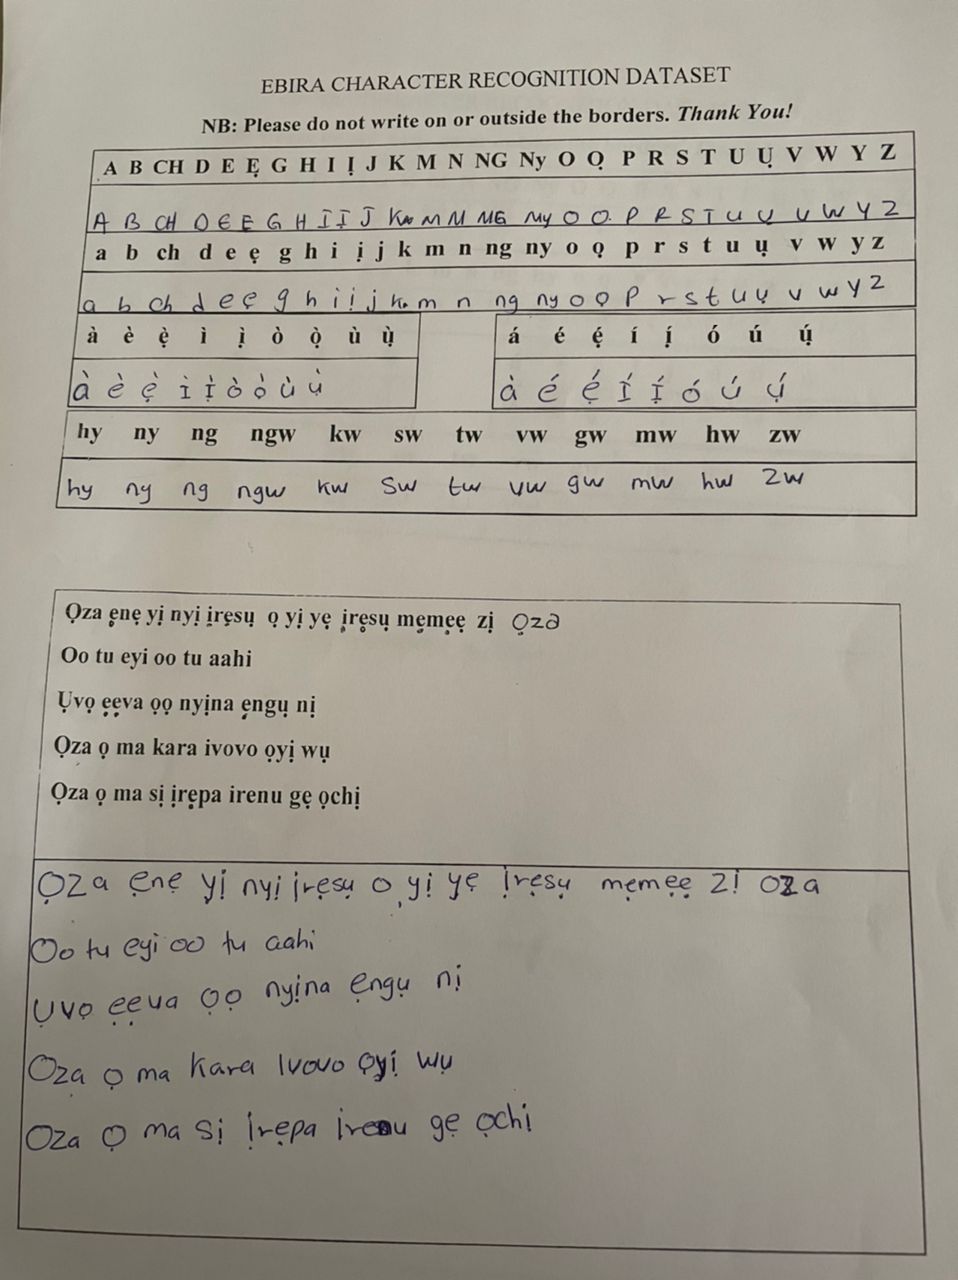 EBIRA CHARACTER RECOGNITION DATASET
NB: Please do not write on or outside the borders. Thank You!
A B CH D E Ẹ G H I Ị J K M N NG Ny O Ọ P R S T U Ụ V W Y Z
A B CH D E E G H I Ị J K M N NG Ny O O. P R S T U Ụ V W Y Z
a b ch d e ẹ g h i ị j k m n ng ny o ọ p r s t u ụ v w y z
a b ch d e ẹ g h i ị j k m n ng ny o ọ p r s t u ụ v w y z
à è ẹ̀ ì ị̀ ò ọ̀ ù ụ̀ á é ẹ́ í ị́ ó ú ụ́
à è ẹ̀ ì ị̀ ò ọ̀ ù ụ̀ à é ẹ́ í ị́ ó ú ụ́
hy ny ng ngw kw sw tw vw gw mw hw zw
hy ny ng ngw kw sw tw vw gw mw hw zw
Ọza ẹnẹ yị nyị ịrẹsụ ọ yị yẹ ịrẹsụ mẹmẹẹ zị ọza
Oo tu eyi oo tu aahi
Ụvọ ẹẹva ọọ nyịna ẹngụ nị
Ọza ọ ma kara ivovo ọyị wụ
Ọza ọ ma sị ịrẹpa irenu gẹ ọchị
Ọza ẹnẹ yị nyị ịrẹsụ o yị yẹ ịrẹsụ mẹmẹẹ zị oza
Oo tu eyi oo tu aahi
Ụvọ ẹẹva ọọ nyịna ẹngụ nị
Oza ọ ma kara Ivovo ọyị wụ
Oza ọ ma sị ịrẹpa irenu gẹ ọchị